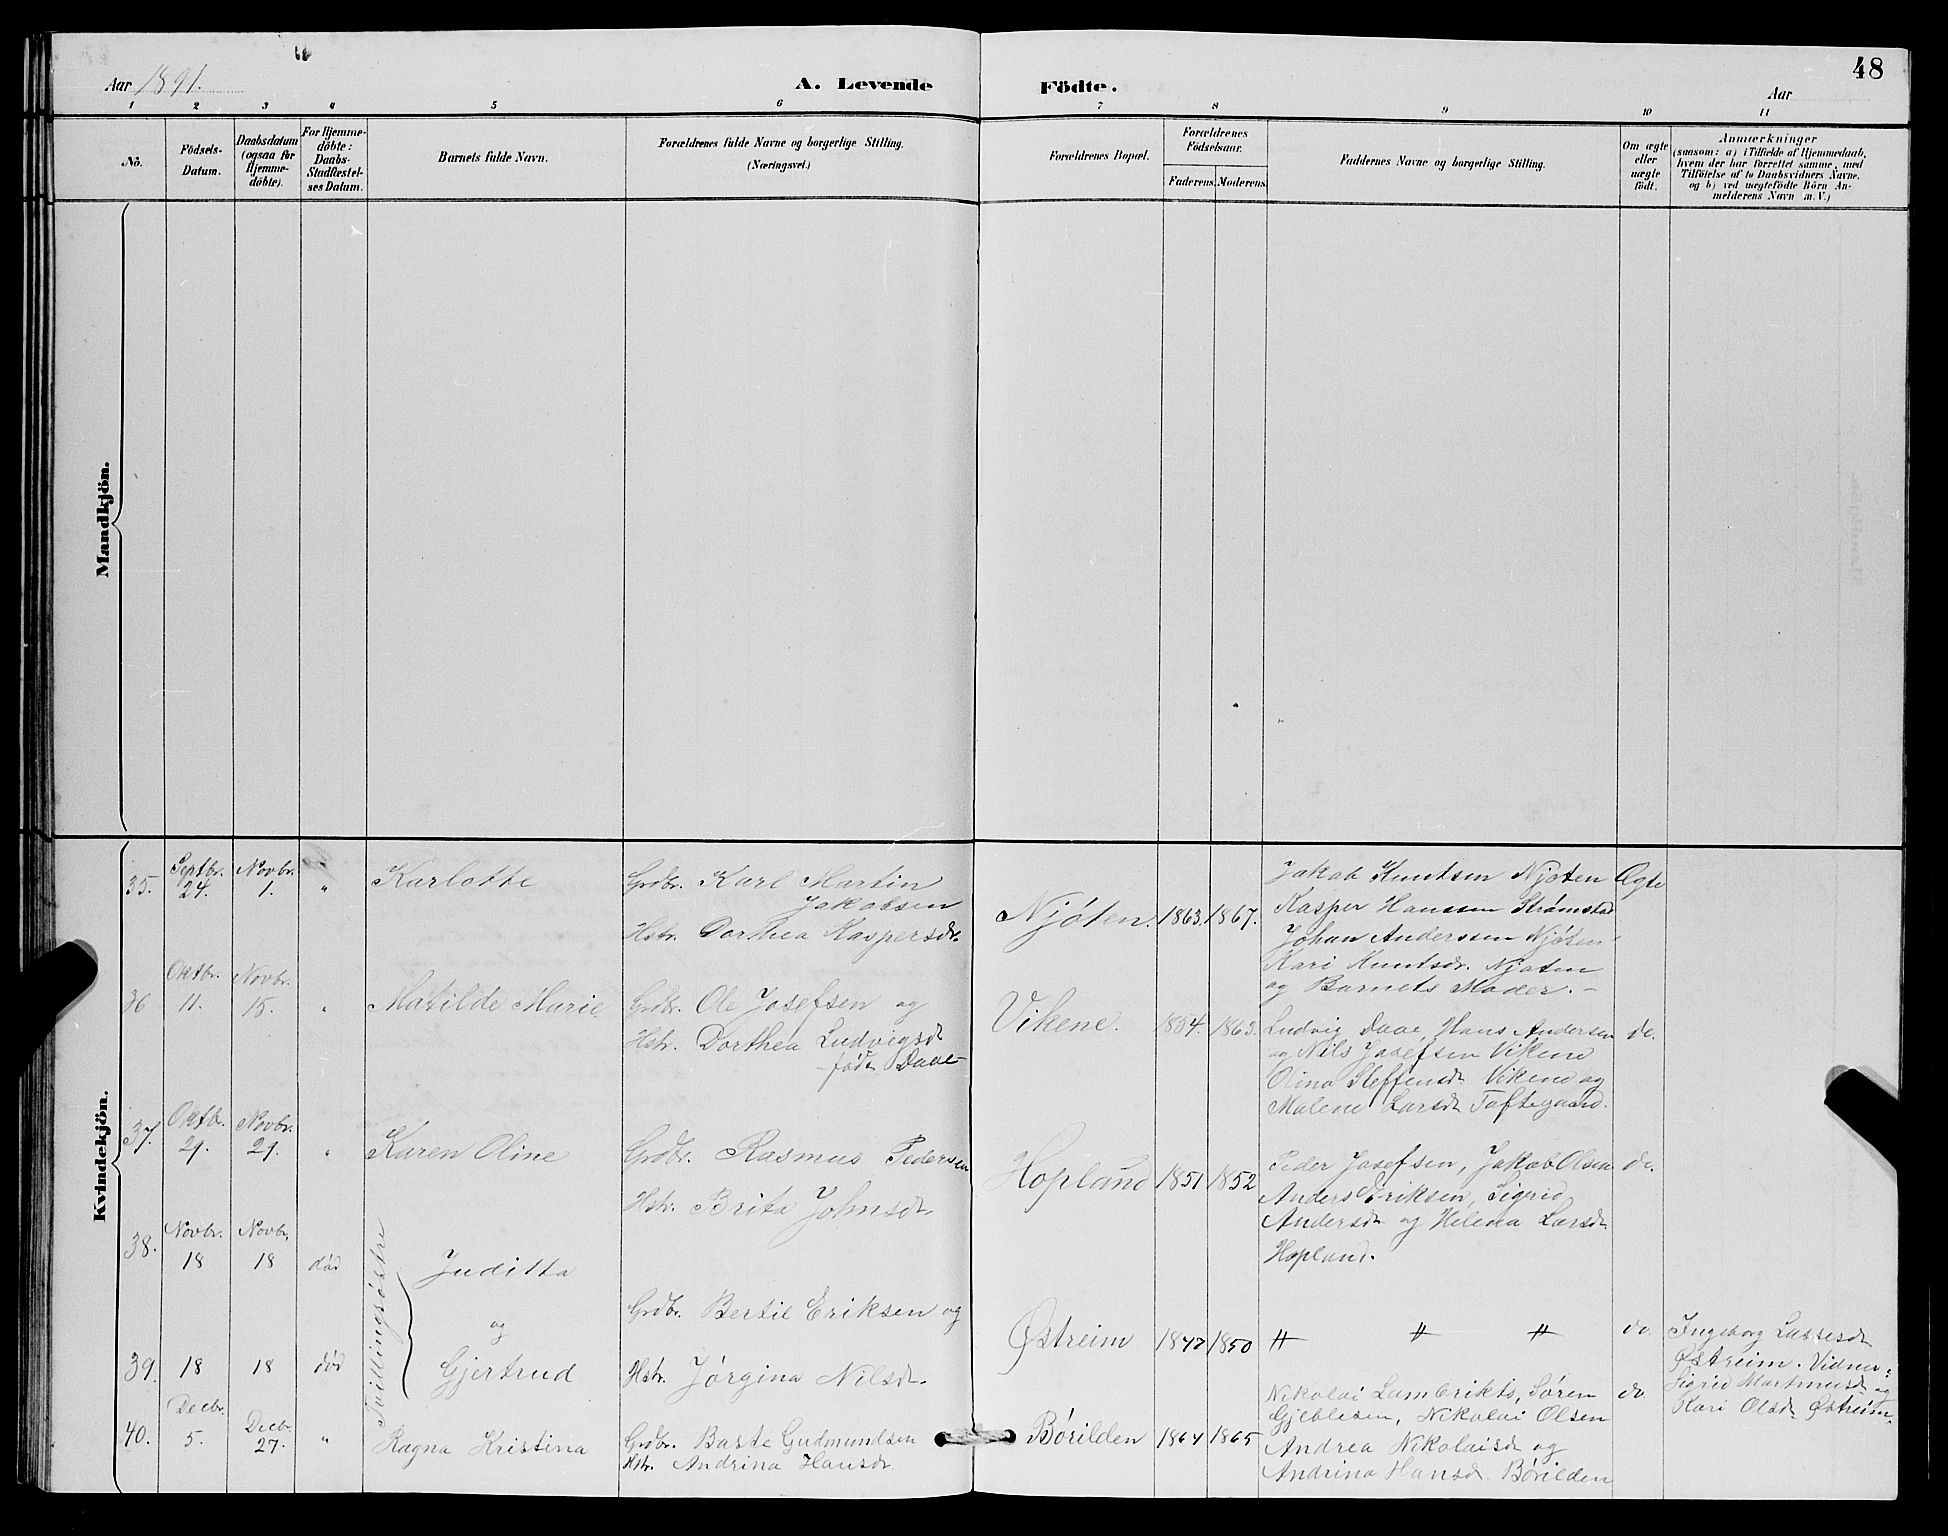 48
Aar 1891.
A. Levende Födte.
Aar
1 2 3 4 5 6 7 8 9 10 11
No.
Födsels-
Datum.
Daabsdatum
(ogsaa for
Hjemme-
döbte).
For Hjemme-
döbte:
Daabs-
Stadfæstel-
ses Datum.
Barnets fulde Navn.
Forældrenes fulde Navne og borgerlige Stilling.
(Næringsvei.)
Forældrenes Bopæl.
Forældrenes
Födselsaar.
Faderens. Moderens.
Faddernes Navne og borgerlige Stilling.
Om ægte
eller
uægte
födt.
Anmærkninger
(saasom: a) i Tilfælde af Hjemmedaab,
hvem der har forrettet samme, med
Tilföielse af to Daabsvidners Navne.
og b) ved uægtefödte Börn An-
melderens Navn m. V.)
Mandkjön.
Kvindekjön.
35. Septbr. 24. Novbr. 1. " Karlotte
Grdbr. Karl Martin
Jakobsen
Hstr. Dorthea Kaspersdr.
Njöten. 1863. 1867.
Jakob Knutsen Njöten Ægte
Kasper Hanssen Strömstad
Johan Anderssen Njöten
Kari Knutsdr. Njöten
og Barnets Moder. -
36 Oktbr. 11. Novbr. 15. " Matilde Marie
Grdbr. Ole Josefsen og
Hstr. Dorthea Ludvigsdr
föde Daae
Vikene. 1854. 1863.
Ludvig Daae, Hans Andersen do.
og Nils Josefsen Vikene
Olina Steffensdr Vikene og
Malene Larsdr Toftegaard.
37. Oktbr. 29. Novbr. 29. " Karen Oline
Grdbr. Rasmus Pedersen
Hstr. Brita Johnsdr.
Hopland 1851 1852
Peder Josefsen, Jakob Olsen do.
Anders Eriksen, Sigrid
Andersdr og Helena Larsdr
Hopland.
38. Novbr. 18 Novbr. 18 död Juditta
Tvillingsöstre
og
39. 18 18 död Gjertrud
Grdbr. Bertil Eriksen og
Hstr. Jørgina Nilsdr.
Østreim 1847 1850 " " " do.
Ingeborg Lassesdr
Østreim. Vidner:
Sigrid Martinusdr og
Kari Olsdr Østreim.
40. Decbr. 5. Decbr. 27. " Ragna Kristina
Grdbr. Baste Gudmundsen
Hstr. Andrina Hansdr
Börilden 1864 1865
Nikolai Lambrikts, Sören do.
Gjeblesen, Nikolai Olsen
Andrea Nikolaisdr og
Andrina Hansdr Börilden